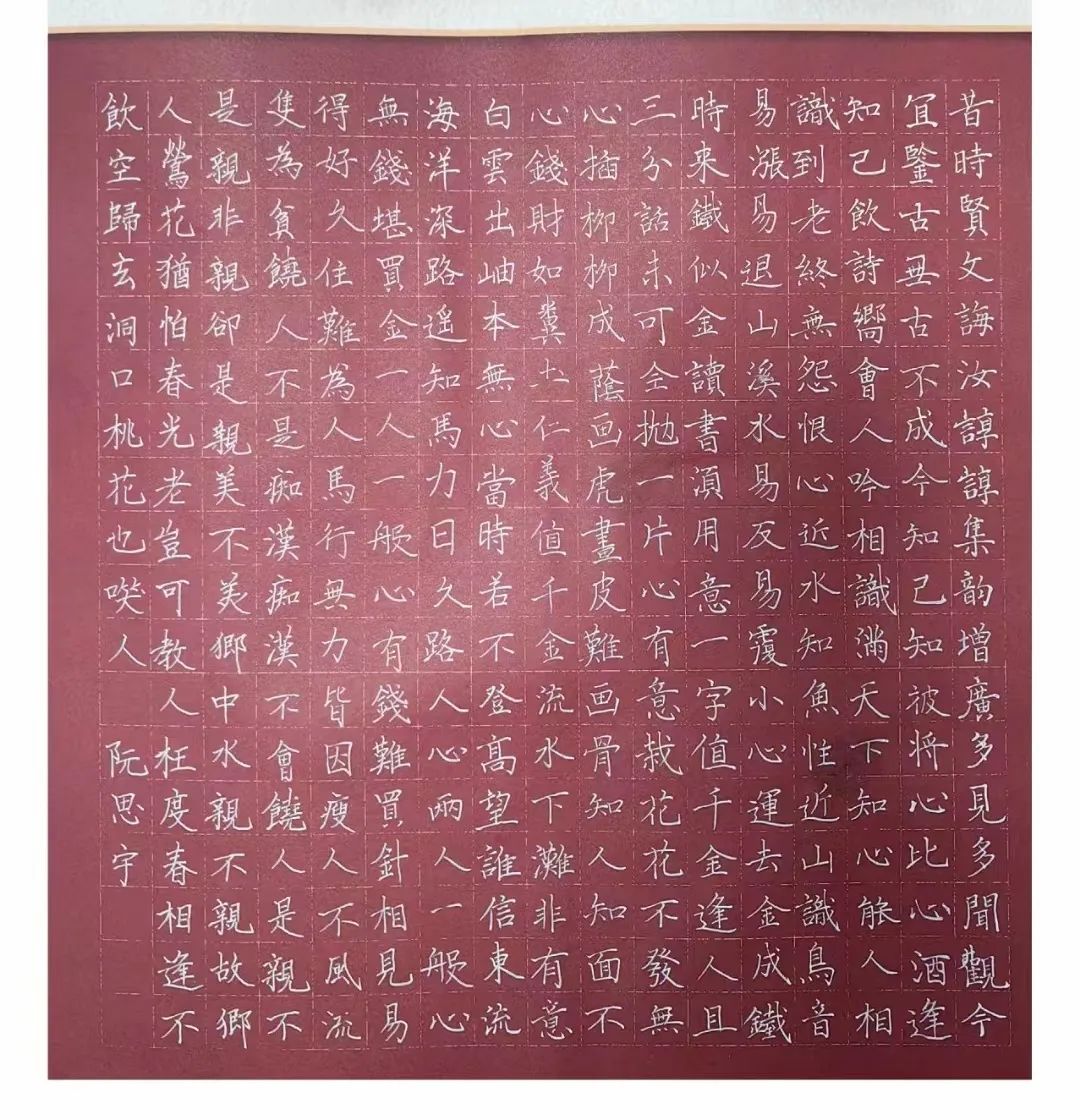 昔時賢文誨汝諄諄集韵增廣多見多聞觀今
宜鑒古毋古不成今知己知彼將心比心酒逢
知己飲詩嚮會人吟相識滿天下知心能人相
識到老終無怨恨心近水知魚性近山識鳥音
易漲易退山溪水易反易覆小心運去金成鐵
時來鐵似金讀書須用意一字值千金逢人且
三分話未可全抛一片心有意栽花花不發無
心插柳柳成蔭画虎畫皮難画骨知人知面不
心錢財如糞土仁義值千金流水下灘非有意
白雲出岫本無心當時若不登高望誰信東流
海洋深路遥知馬力日久路人心兩人一般心
無錢堪買金一人一般心有錢難買針相見易
得好久住難為人馬行無力皆因瘦人不風流
隻為貧饒人不是痴漢痴漢不會饒人是親不
是親非親卻是親美不美鄉中水親不親故鄉
人鶯花猶怕春光老豈可教人枉度春相逢不
飲空歸玄洞口桃花也笑人 阮思宇